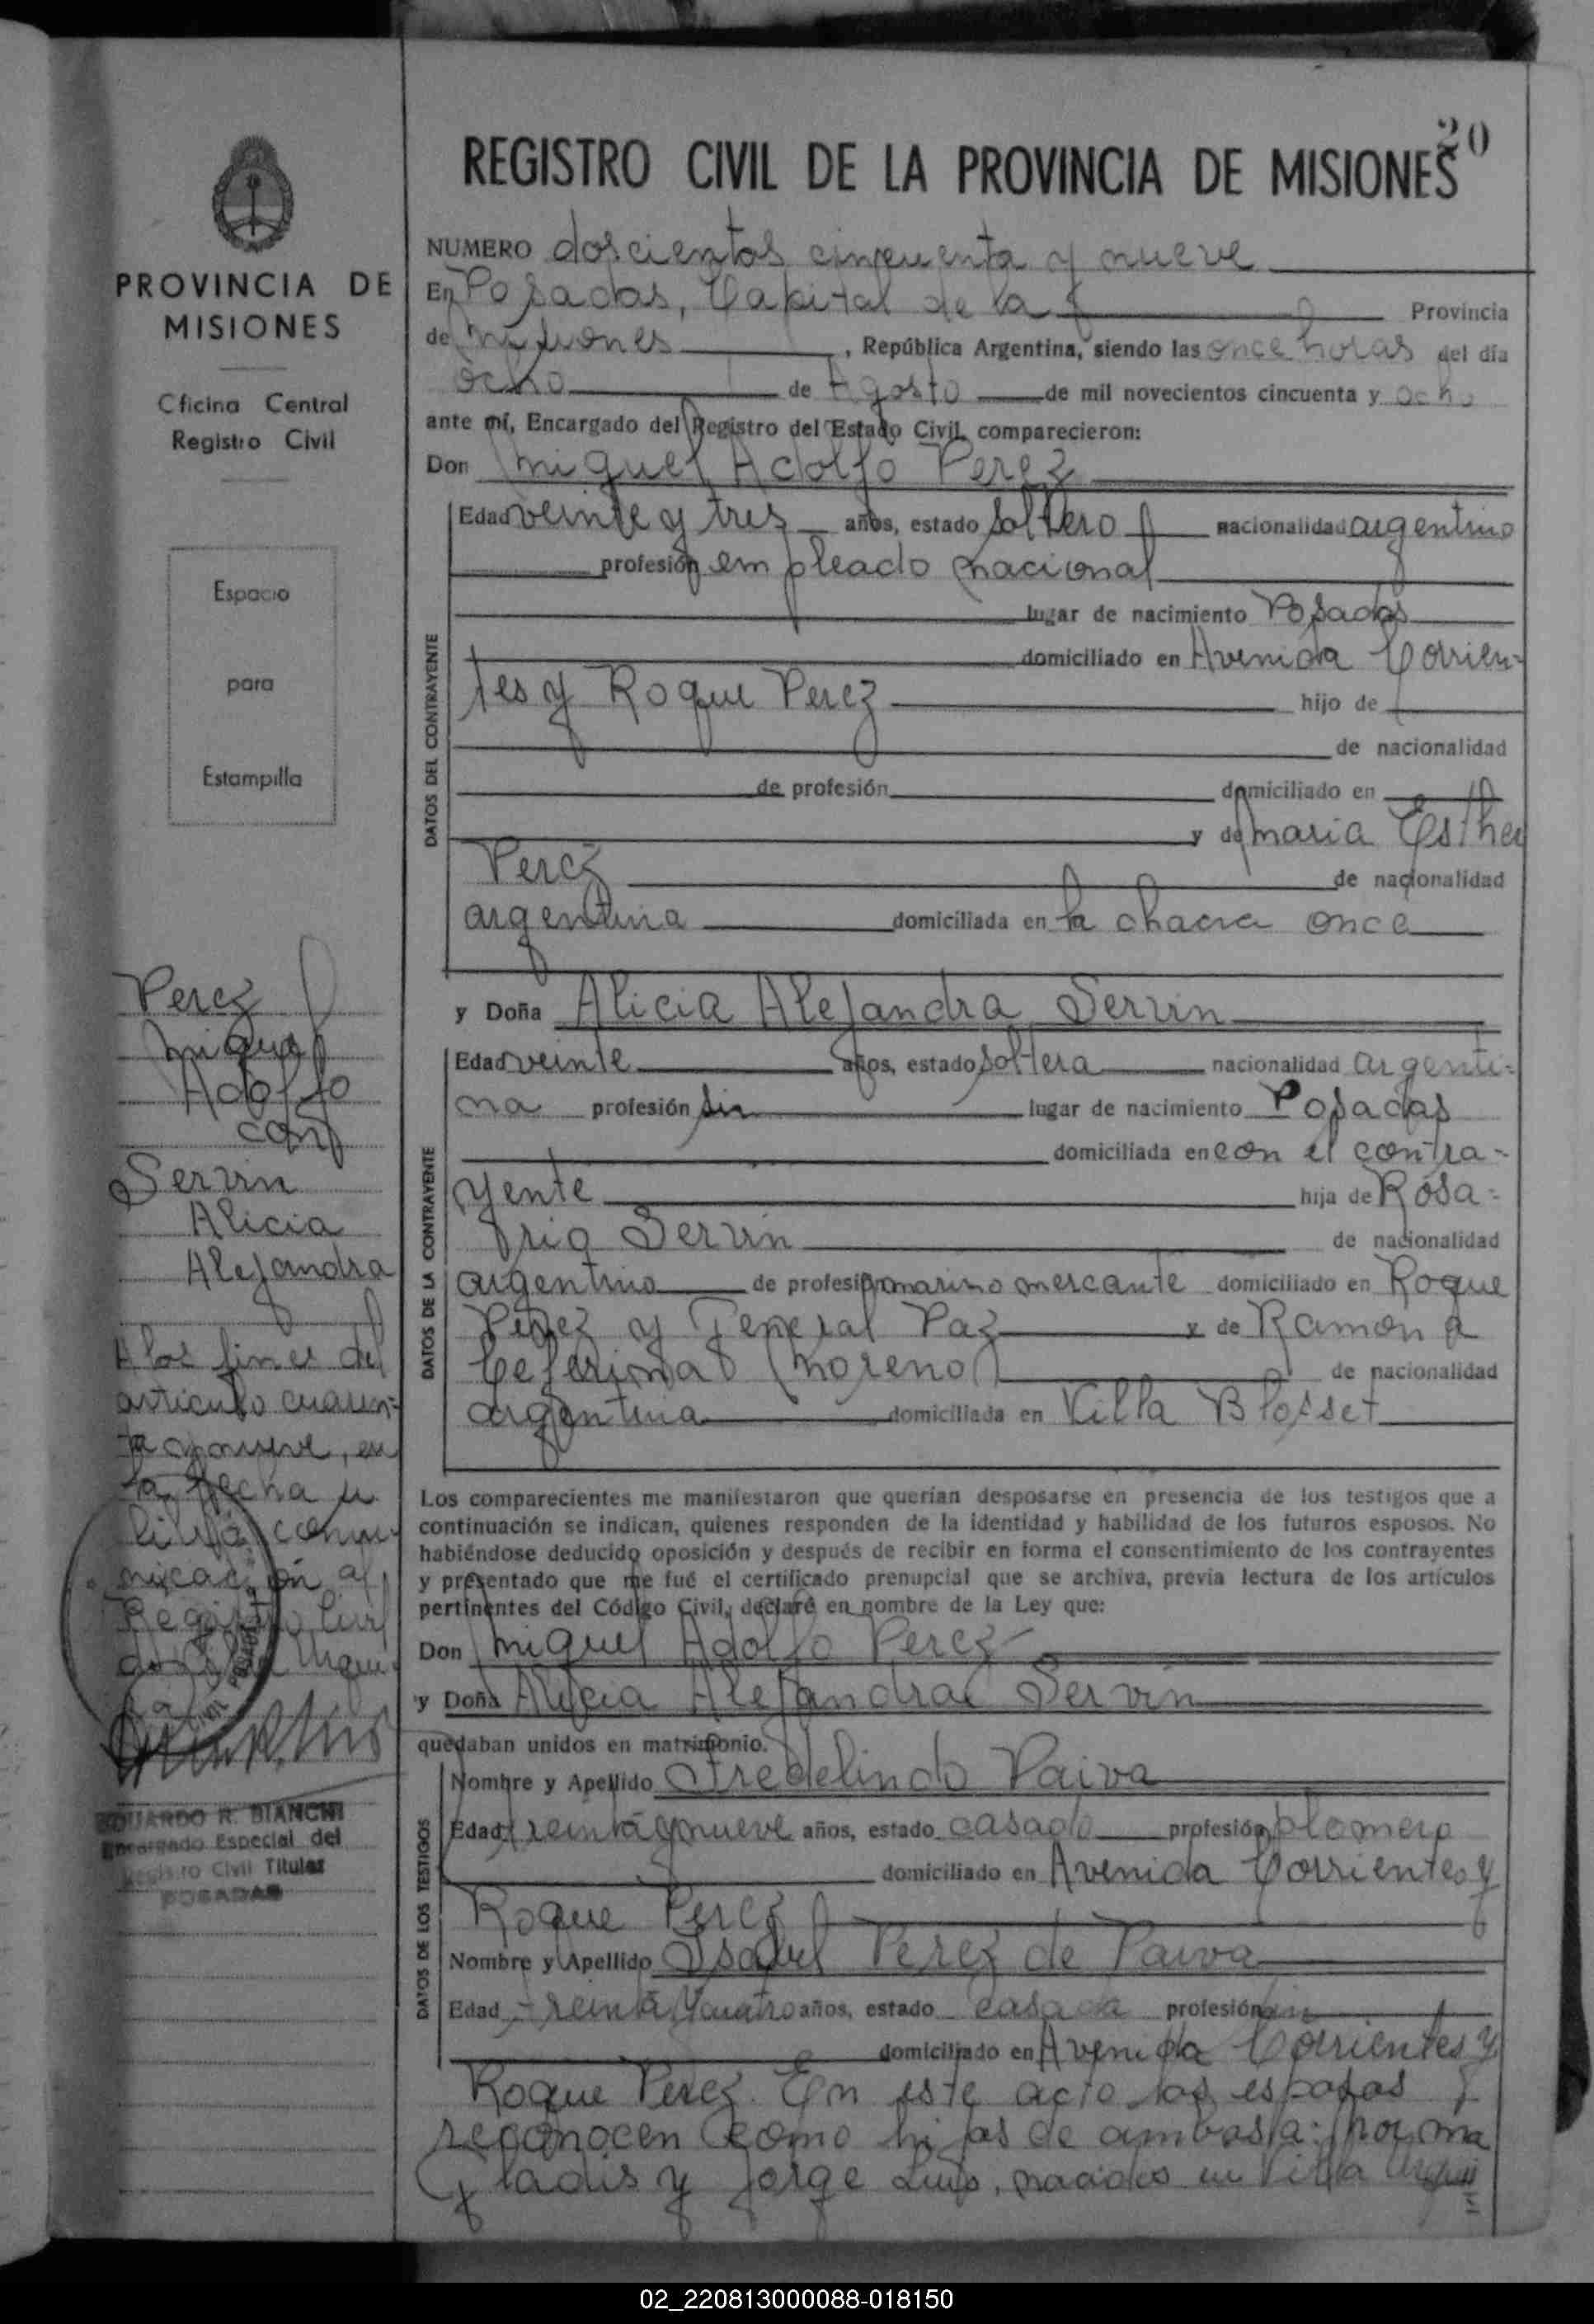 20
REGISTRO CIVIL DE LA PROVINCIA DE MISIONES
NUMERO doscientos cincuenta y nueve
En Posadas, Capital de la Provincia
de Misiones, República Argentina, siendo las once horas del día
ocho de Agosto de mil novecientos cincuenta y ocho
ante mí, Encargado del Registro del Estado Civil, comparecieron:
Don Miguel Adolfo Perez
Edad veinte y tres años, estado soltero nacionalidad argentino
profesión empleado nacional
lugar de nacimiento Posadas
domiciliado en Avenida Corrien-
tes y Roque Perez hijo de
de nacionalidad
de profesión domiciliado en
y de Maria Esther
Perez de nacionalidad
argentina domiciliada en la chacra once
y Doña Alicia Alejandra Servin
Edad veinte años, estado soltera nacionalidad argenti-
na profesión sin lugar de nacimiento Posadas
domiciliada en con el contra-
yente hija de Rosa-
Servin de nacionalidad
argentino de profesión marino mercante domiciliado en Roque
Perez y General Paz y de Ramona
Ceferina Moreno de nacionalidad
argentina domiciliada en Villa Blosset
Los comparecientes me manifestaron que querían desposarse en presencia de los testigos que a
continuación se indican, quienes responden de la identidad y habilidad de los futuros esposos. No
habiéndose deducido oposición y después de recibir en forma el consentimiento de los contrayentes
y presentado que me fué el certificado prenupcial que se archiva, previa lectura de los artículos
pertinentes del Código Civil, declaré en nombre de la Ley que:
Don Miguel Adolfo Perez
y Doña Alicia Alejandra Servin
quedaban unidos en matrimonio.
Nombre y Apellido Fredelindo Paiva
Edad treinta y nueve años, estado casado profesión plomero
domiciliado en Avenida Corrientes y
Roque Perez
Nombre y Apellido Isabel Perez de Paiva
Edad treinta y cuatro años, estado casada profesión sin
domiciliado en Avenida Corrientes y
Roque Perez. En este acto los esposos
reconocen como hijos de ambos a: Norma
Gladis y Jorge Luis, nacidos en Villa Urqui
DATOS DEL CONTRAYENTE
DATOS DE LA CONTRAYENTE
DATOS DE LOS TESTIGOS
PROVINCIA DE
MISIONES
Oficina Central
Registro Civil
Espacio
para
Estampilla
Perez
Miguel
Adolfo
con
Servin
Alicia
Alejandra
A los fines del
articulo cuaren-
ta y nueve, en
la fecha se
comu-
nicación al
Registro Civil
de Villa Urqui-
za
EDUARDO R. BIANCHI
Encargado Especial del
Registro Civil Titular
POSADAS
02_220813000088-018150